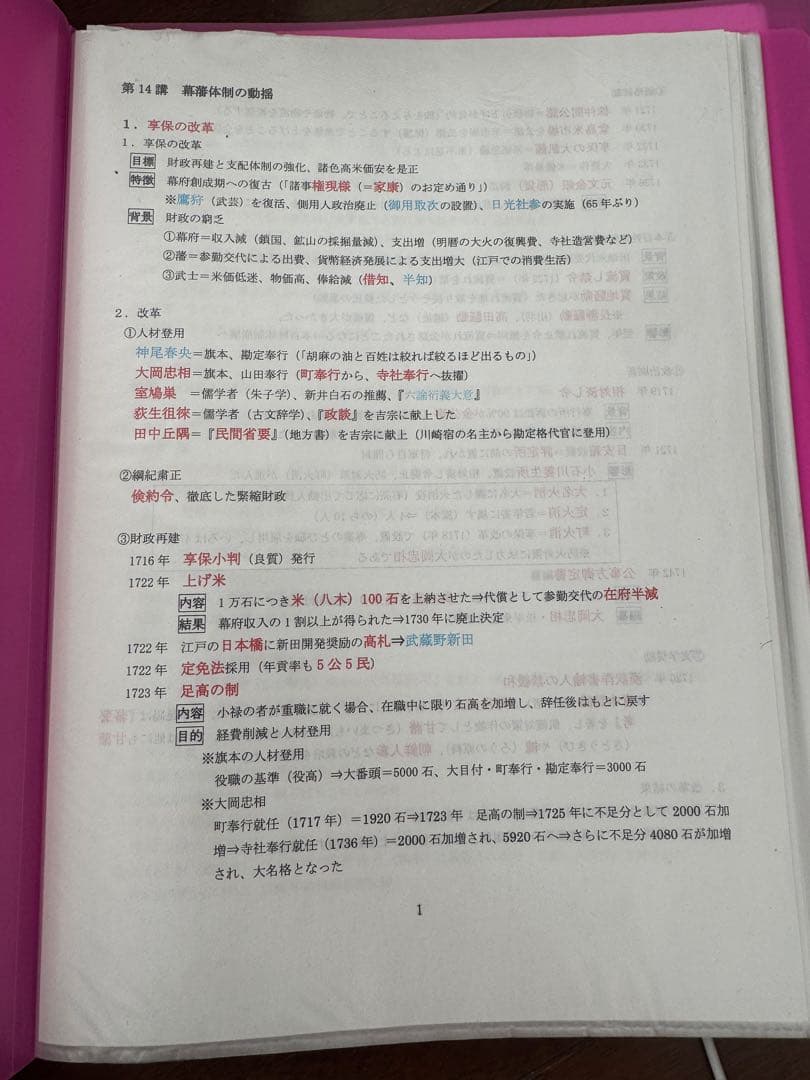 第14講　幕藩体制の動揺
１．享保の改革
１．享保の改革
目標　財政再建と支配体制の強化、諸色高米価安を是正
特徴　幕府創成期への復古（「諸事権現様（＝家康）のお定め通り」）
※鷹狩（武芸）を復活、側用人政治廃止（御用取次の設置）、日光社参の実施（65年ぶり）
背景　財政の窮乏
①幕府＝収入減（鎖国、鉱山の採掘量減）、支出増（明暦の大火の復興費、寺社造営費など）
②藩＝参勤交代による出費、貨幣経済発展による支出増大（江戸での消費生活）
③武士＝米価低迷、物価高、俸給減（借知、半知）
２．改革
①人材登用
神尾春央＝旗本、勘定奉行（「胡麻の油と百姓は絞れば絞るほど出るもの」）
大岡忠相＝旗本、山田奉行（町奉行から、寺社奉行へ抜擢）
室鳩巣　＝儒学者（朱子学）、新井白石の推薦、『六諭衍義大意』
荻生徂徠＝儒学者（古文辞学）、『政談』を吉宗に献上した
田中丘隅＝『民間省要』（地方書）を吉宗に献上（川崎宿の名主から勘定格代官に登用）
②綱紀粛正
倹約令、徹底した緊縮財政
③財政再建
1716年　享保小判（良質）発行
1722年　上げ米
内容　1万石につき米（八木）100石を上納させた⇒代償として参勤交代の在府半減
結果　幕府収入の1割以上が得られた⇒1730年に廃止決定
1722年　江戸の日本橋に新田開発奨励の高札⇒武蔵野新田
1722年　定免法採用（年貢率も５公５民）
1723年　足高の制
内容　小禄の者が重職に就く場合、在職中に限り石高を加増し、辞任後はもとに戻す
目的　経費削減と人材登用
※旗本の人材登用
役職の基準（役高）⇒大番頭＝5000石、大目付・町奉行・勘定奉行＝3000石
※大岡忠相
町奉行就任（1717年）＝1920石⇒1723年　足高の制⇒1725年に不足分として2000石加
増⇒寺社奉行就任（1736年）＝2000石加増され、5920石へ⇒さらに不足分4080石が加増
され、大名格となった
1